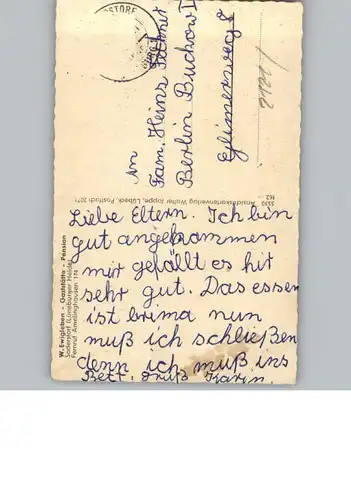 Liebe Eltern. Ich bin
gut angekommen
mir gefällt es hir
sehr gut. Das essen
ist brima nun
muß ich schließen
denn ich muß ins
Bett. Gruß Karin.
An
Fam. Heinz
Berlin Buchow I
W. Ewigleben - Gaststätte - Pension
Soderstorf (Lüneburger Heide)
Fernruf Amelinghausen 174
Ansichtskartenverlag Walter Joppe, Lübeck, Postfach 2071